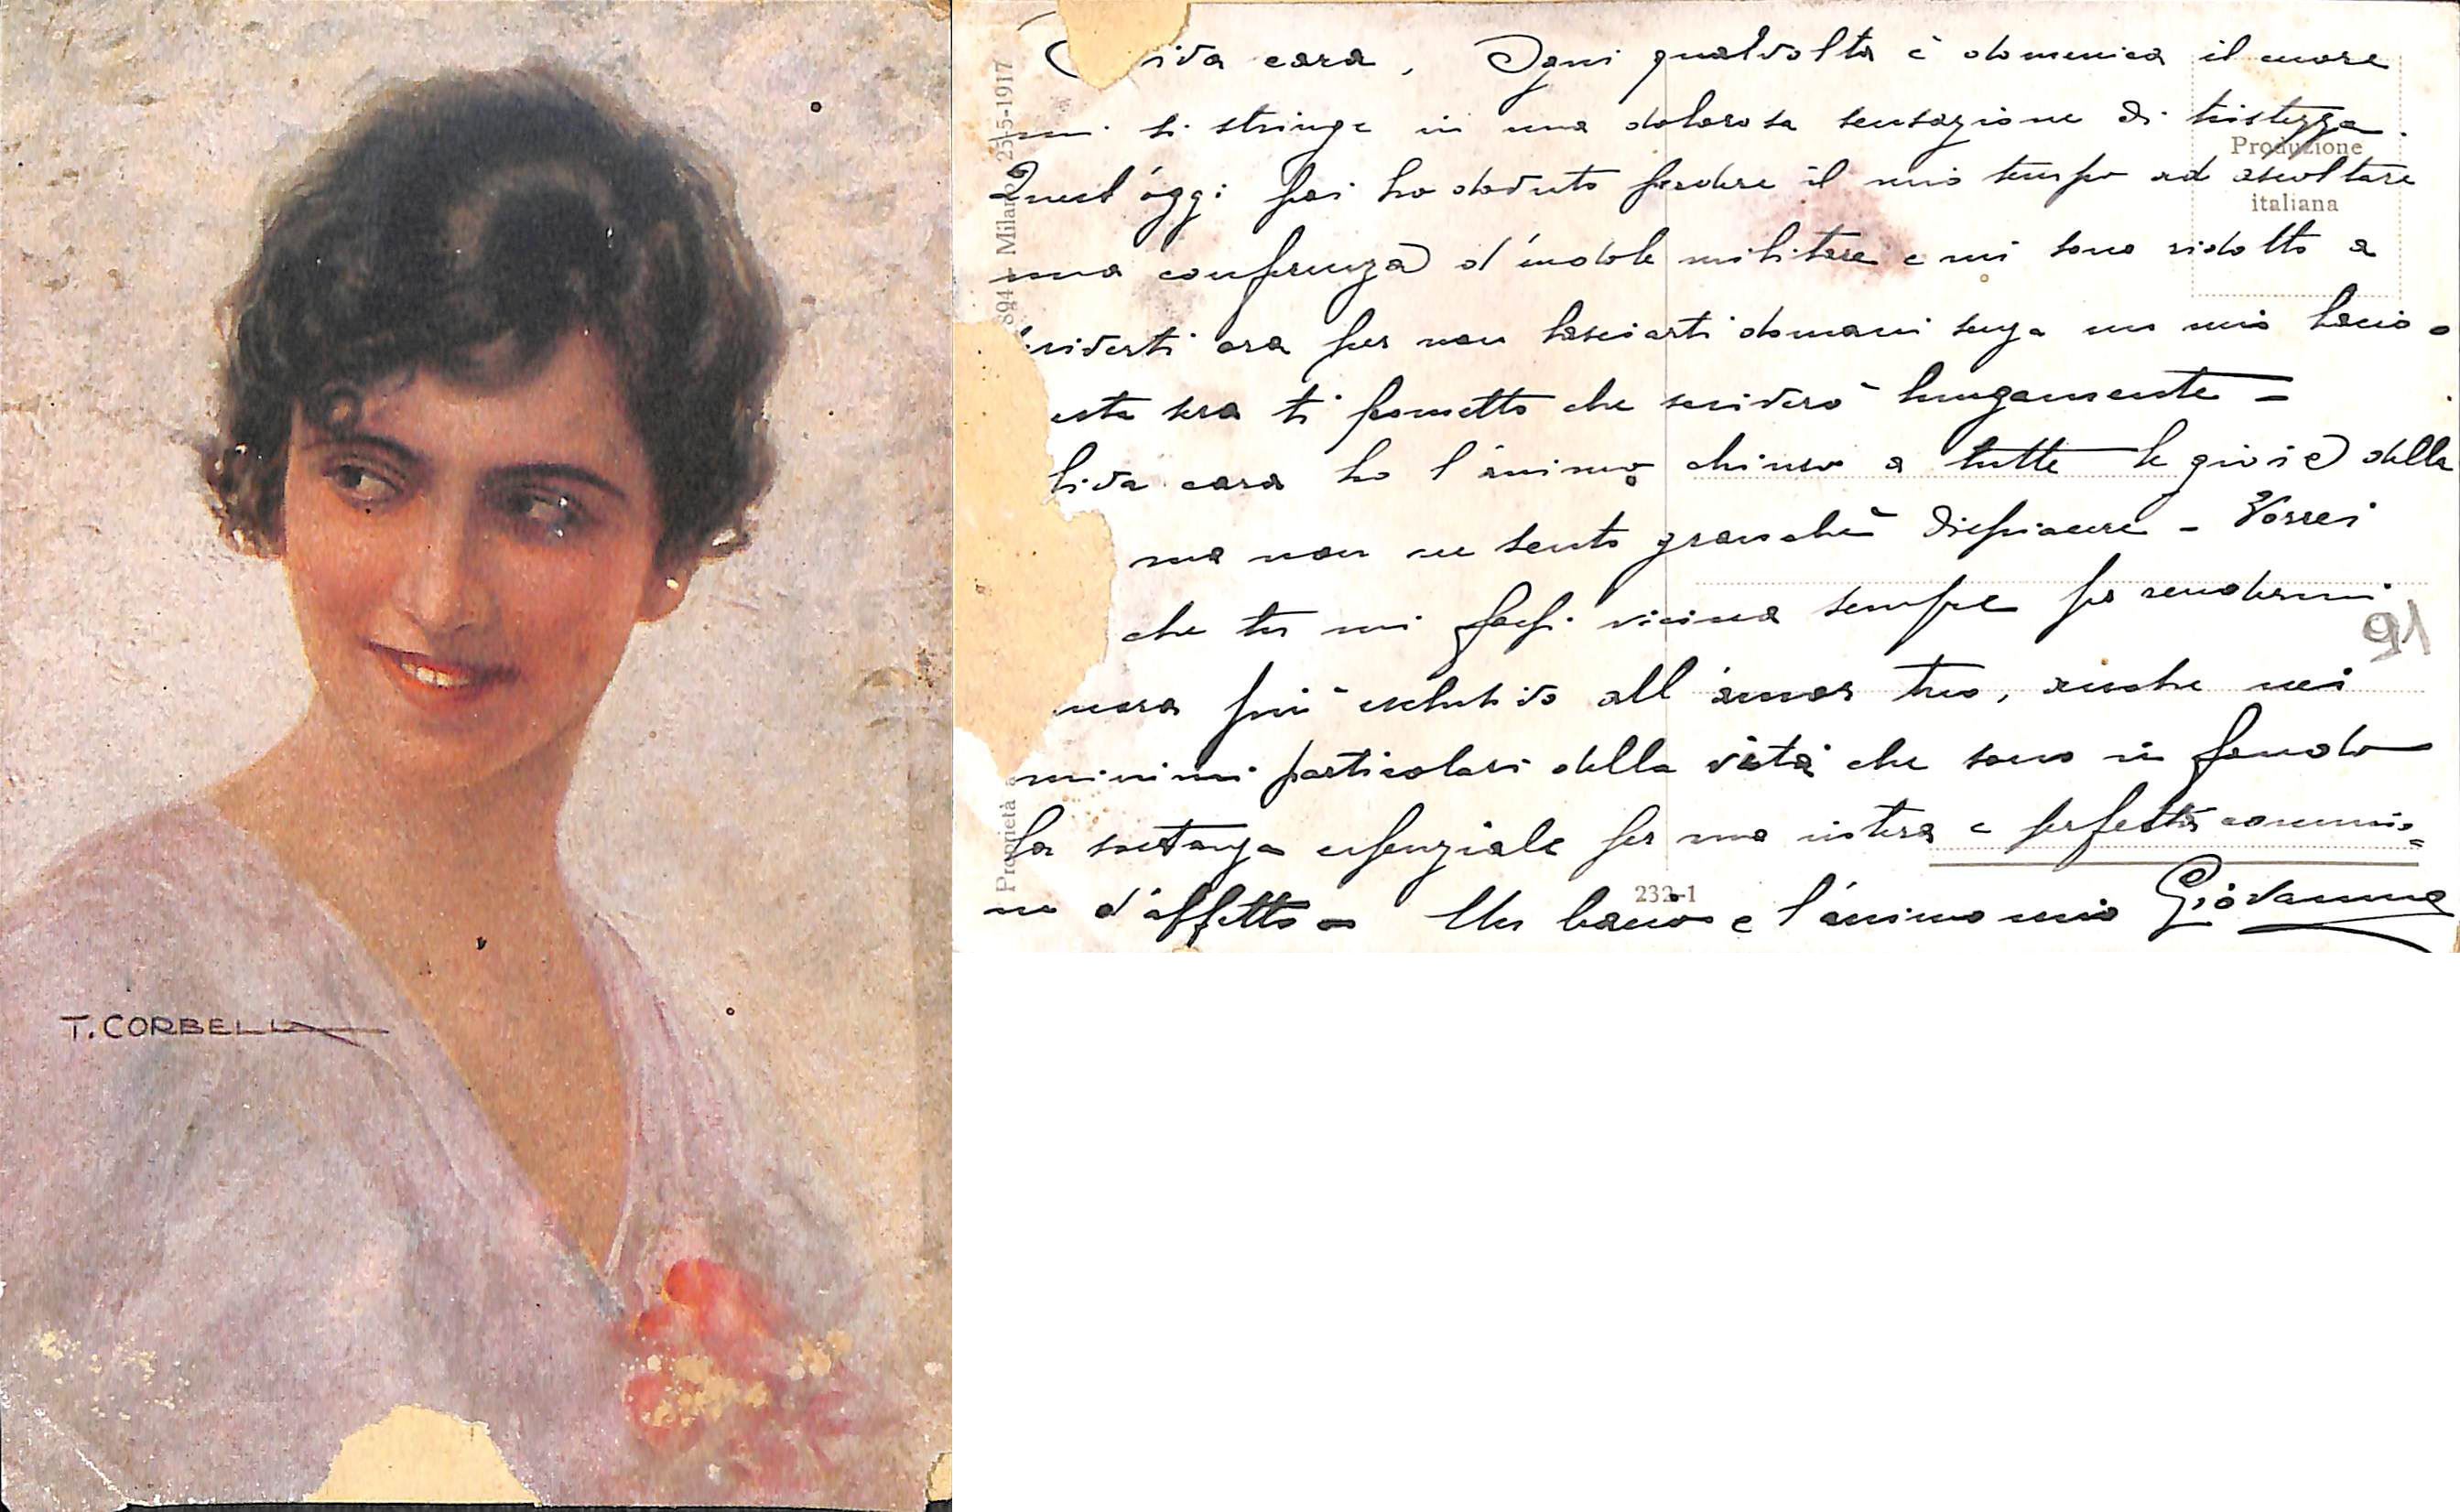 T. CORBELLA
iva cara, Ogni qualvolta è domenica il cuore
mi si stringe in una dolorosa sensazione di tristezza.
Quest'oggi poi ho dovuto perdere il mio tempo ad ascoltare
una conferenza d'indole militare e mi sono ridotto a
scriverti ora per non lasciarti domani senza un mio bacio.
esta sera ti prometto che scriverò lungamente =
liva cara ho l'animo chiuso a tutte le gioie della
ma non ne sento granchè dispiacere - Vorrei
che tu mi fossi vicina sempre per rendermi
ncora più esclusivo all'amor tuo, anche nei
minimi particolari della vita che sono in fondo
la sostanza essenziale per una intera e perfetta comunio=
ne d'affetto = Un bacio e l'animo mio Giovanni
Produzione
italiana
894 - Milano 25-5-1917
Proprietà a
232-1
91